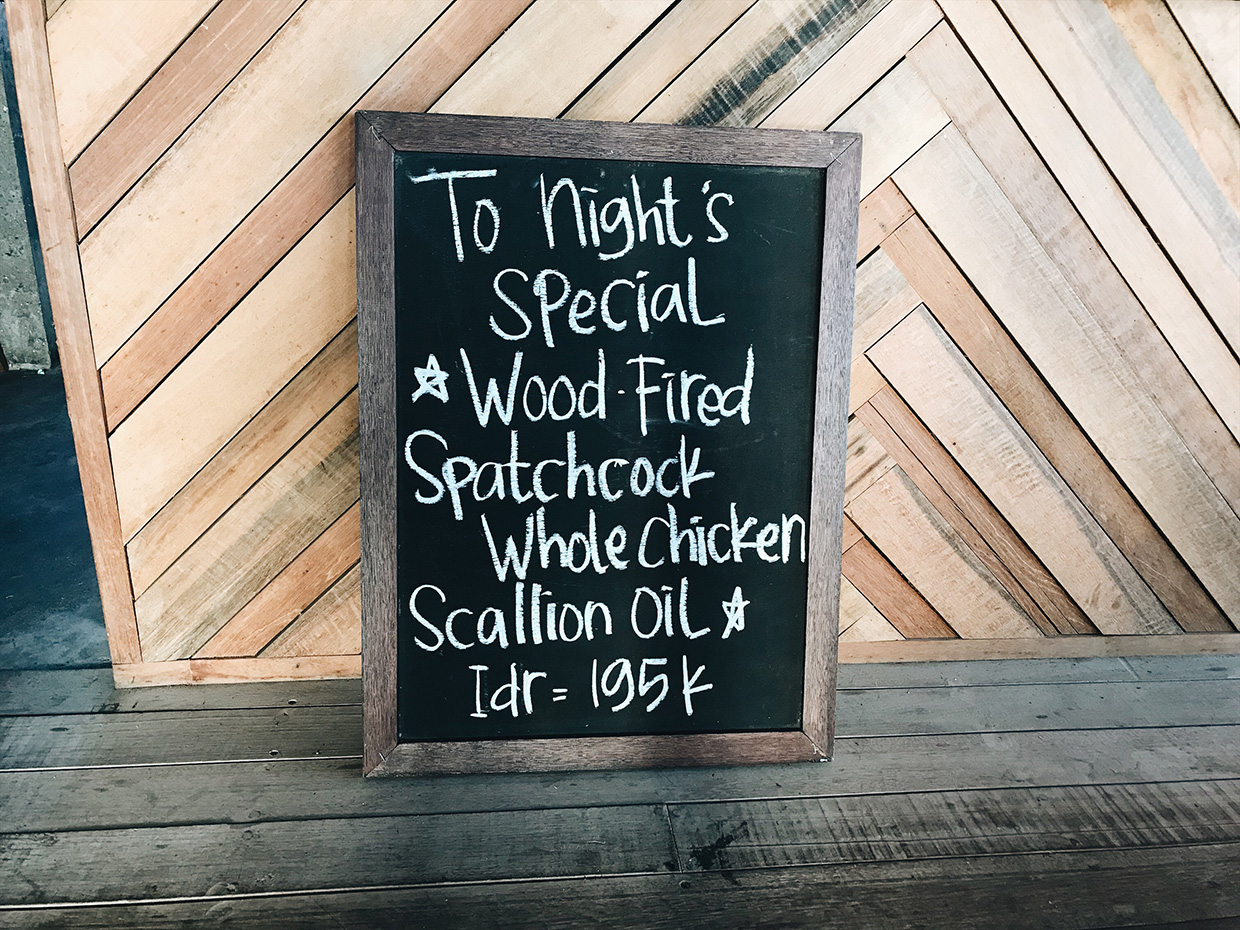 To Night's
Special
☆ Wood-Fired
Spatchcock
Whole Chicken
Scallion Oil ☆
Idr = 195k